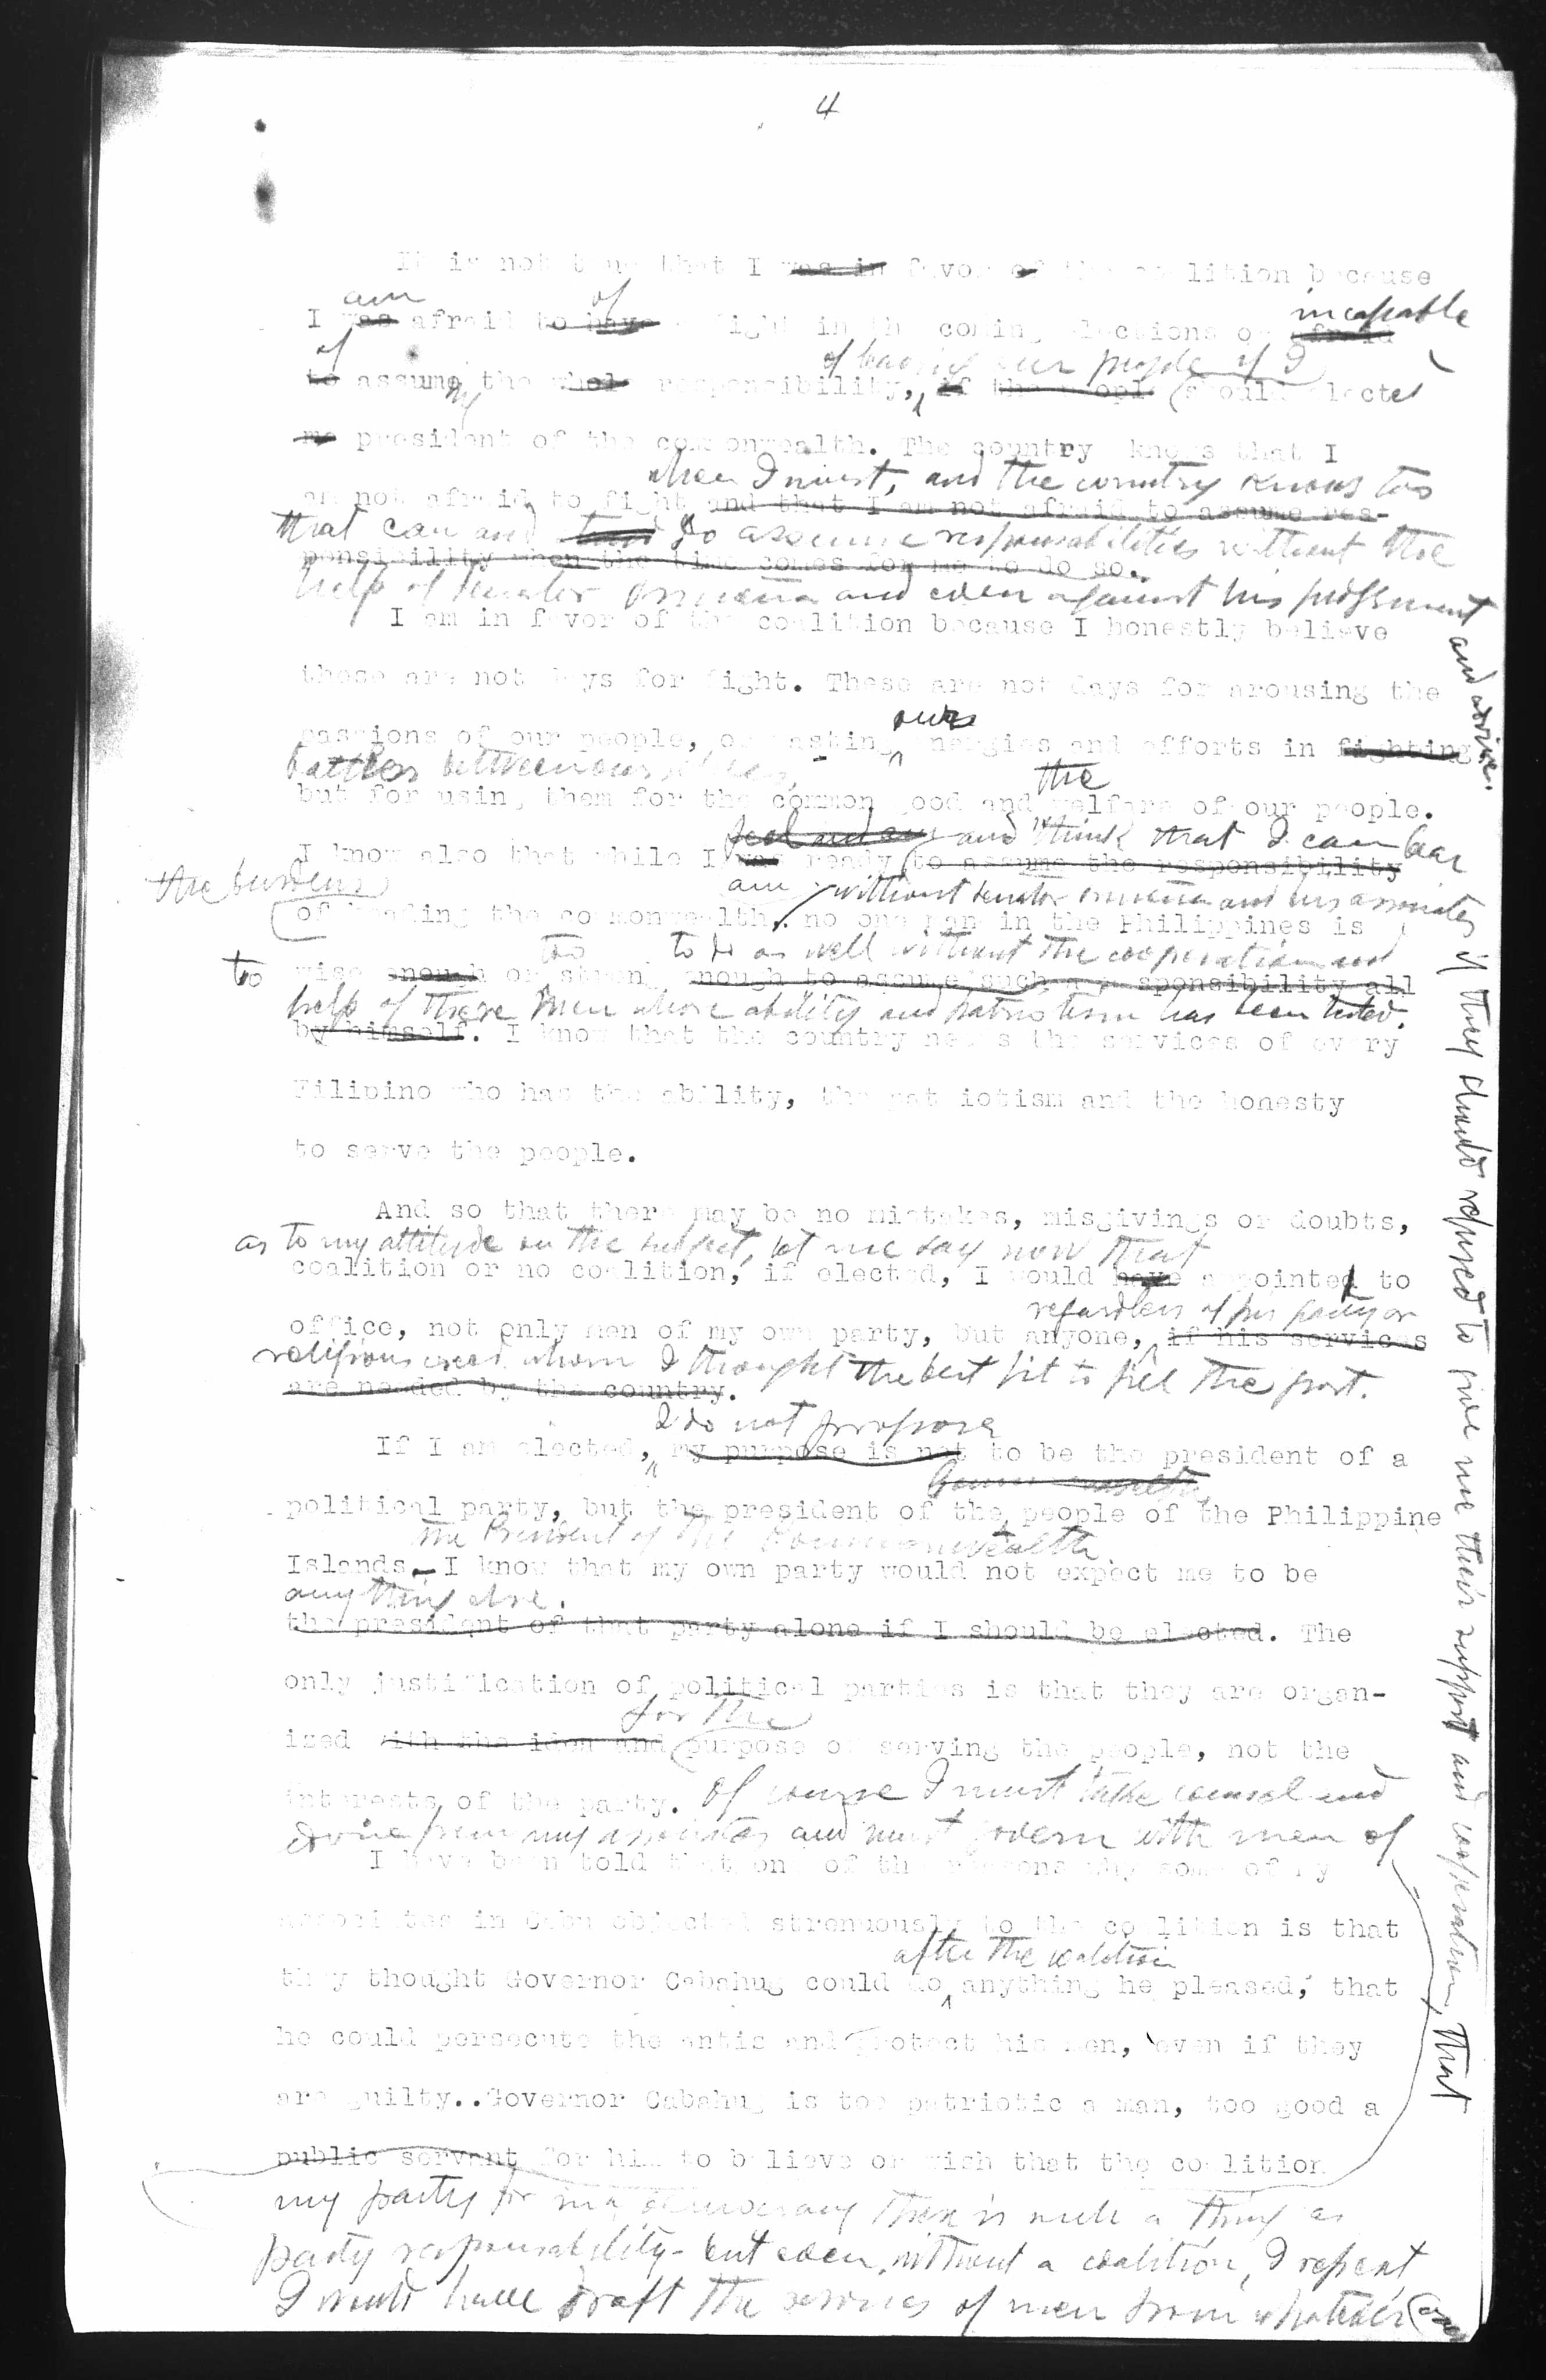 4
It is not true that I was in favor of the coalition because
am of incapable
I was afraid to have fight in the coming elections or afraid
of of leading our people if I
to assuming the whole responsibility, if the people should elected
me president of the commonwealth. The country knows that I
when I must, and the country knows too
am not afraid to fight and that I am not afraid to assume res-
that can and do assume responsabilities without the
ponsibility when the time comes for me to do so.
help of Senator Osmeña and even against his judgment and advice.
I am in favor of the coalition because I honestly believe
these are not days for fight. These are not days for arousing the
our
passions of our people, or wasting energies and efforts in fighting
battles between ourselves,
the
but for using them for the common good and welfare of our people.
and think that I can bear
I know also that while I was ready to assume the responsibility
the burdens am without Senator Osmeña and his associates if they should refused to give me their support and cooperation, that
of heading the commonwealth, no one man in the Philippines is
too to do as well without the cooperation and
to wise enough or strong enough to assume such a responsibility all
help of these men whose ability and patriotism has been tested.
by himself. I know that the country needs the services of every
Filipino who has the ability, the patriotism and the honesty
to serve the people.
And so that there may be no mistakes, misgivings or doubts,
as to my attitude on the subject, let me say now that
coalition or no coalition, if elected, I would have appointed to
regardless of his party or
office, not only men of my own party, but anyone, if his services
religious creed whom I thought the best fit to fill the post.
are needed by the country.
I do not propose
If I am elected, my purpose is not to be the president of a
political party, but the president of the people of the Philippine
the President of the Commonwealth.
Islands. I know that my own party would not expect me to be
anything else.
the president of that party alone if I should be elected. The
only justification of political parties is that they are organ-
for the
ized with the idea and purpose of serving the people, not the
interests of the party. Of course I must take counsel and
from my associates and must govern with men of
I have been told that one of the reasons why some of my
associates in Cebu objected strenuously to the coalition is that
after the coalition
they thought Governor Cabahug could do anything he pleased, that
he could persecute the antis and protect his men, even if they
are guilty..Governor Cabahug is too patriotic a man, too good a
public servant for him to believe or wish that the coalition
my party for in a democracy there is such a thing as
party responsability - but even without a coalition, I repeat,
I would have draft the services of men from whatever